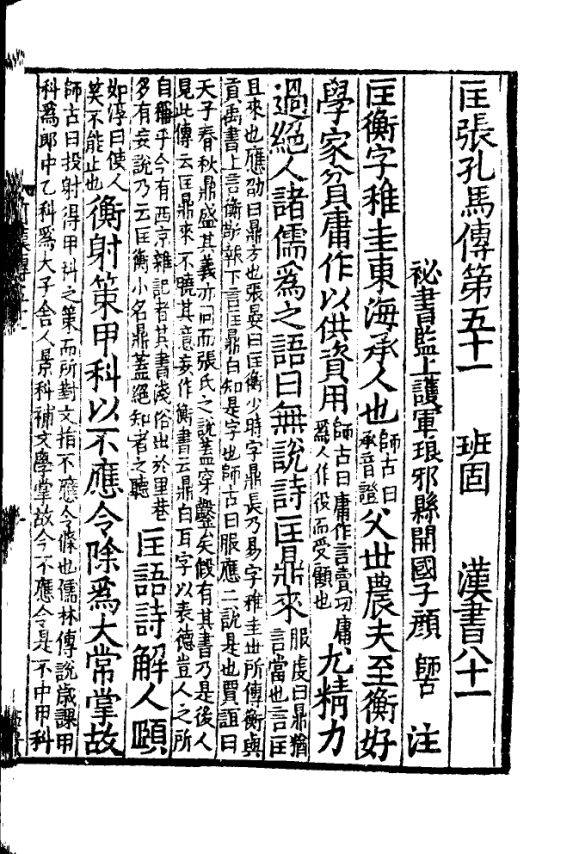 匡張孔馬傳第五十一 班固 漢書八十一
祕書監上護軍琅邪縣開國子顏 師古 注
匡衡字稚圭東海承人也師古曰承音證父世農夫至衡好
學家貧庸作以供資用師古曰庸作言賣功庸爲人作役而受顧也尤精力
過絕人諸儒爲之語曰無說詩匡鼎來服虔曰鼎猶言當也言匡
且來也應劭曰鼎方也張晏曰匡衡少時字鼎長乃易字稚圭世所傳衡與
貢禹書上言衡敬報下言匡鼎白知是字也師古曰服應二說是也賈誼曰
天子春秋鼎盛其義亦同而張氏之說蓋穿鑿矣假有其書乃是後人
見此傳云匡鼎來不曉其意妄作衡書云鼎白耳字以表德豈人之所
自稱乎今有西京雜記者其書淺俗出於里巷
多有妄說乃云匡衡小名鼎蓋絕知者之聽匡語詩解人頤
如淳曰使人笑不能止也衡射策甲科以不應令除爲大常掌故
師古曰投射得甲科之策而所對文指不應令條也儒林傳說歲課甲
科爲郎中乙科爲大子舍人景科補文學掌故今不應令是不中甲科